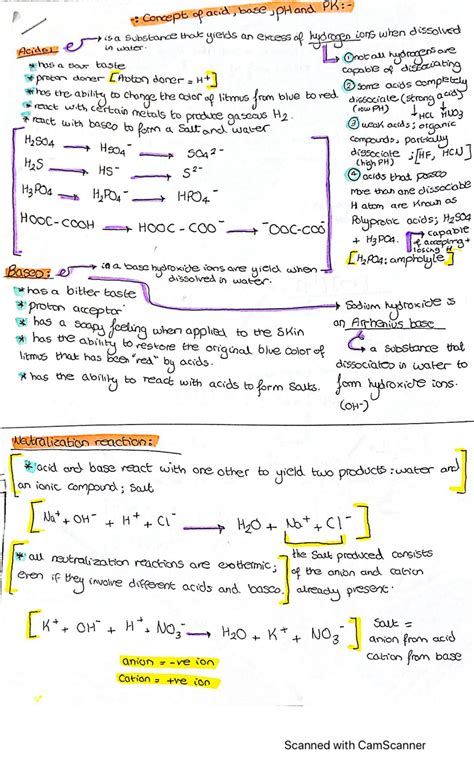 : Concept of acid, base, pH and PK :-
Acids: is a substance that yields an excess of hydrogen ions when dissolved
in water.
* has a sour taste
* proton doner [Proton doner = H+]
* has the ability to change the color of litmus from blue to red
* react with certain metals to produce gaseous H2.
* react with bases to form a salt and water
① not all hydrogens are
capable of dissociating
② some acids completely
dissociate (strong acid)
(low pH) HCL HNO3
③ weak acids; organic
compounds, partially
dissociate ; [HF, HCN]
(high pH)
④ acids that posses
more than one dissociable
H atom are known as
Polyprotic acids; H2SO4
+ H3PO4. capable
of accepting +
losing H
[H2PO4: ampholyte]
H2SO4 → HSO4- → SO4 2-
H2S → HS- → S2-
H3PO4 → H2PO4- → HPO4-
HOOC-COOH → HOOC-COO- → -OOC-COO-
Bases: in a base hydroxide ions are yield when
dissolved in water.
* has a bitter taste
* proton acceptor
* has a soapy feeling when applied to the skin
* has the ability to restore the original blue color of
litmus that has been "red" by acids.
* has the ability to react with acids to form salts.
Sodium hydroxide is
an Arrhenius base
a substance that
dissociates in water to
form hydroxide ions.
(OH-)
Neutralization reaction:
* acid and base react with one other to yield two products: water and
an ionic compound; salt
[Na+ + OH- + H+ + Cl- → H2O + Na+ + Cl-]
* all neutralization reactions are exothermic;
even if they involve different acids and bases.
the salt produced consists
of the anion and cation
already present.
[K+ + OH- + H+ + NO3- → H2O + K+ + NO3-]
Salt =
anion from acid
cation from base
anion = -ve ion
Cation = +ve ion
Scanned with CamScanner